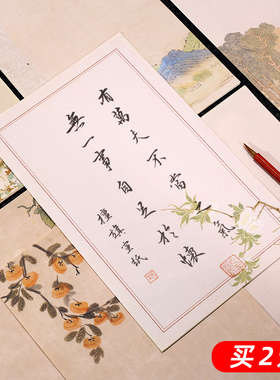 有萬夫不當之氣
無一事自足於懷
檀旗宣紙
买2